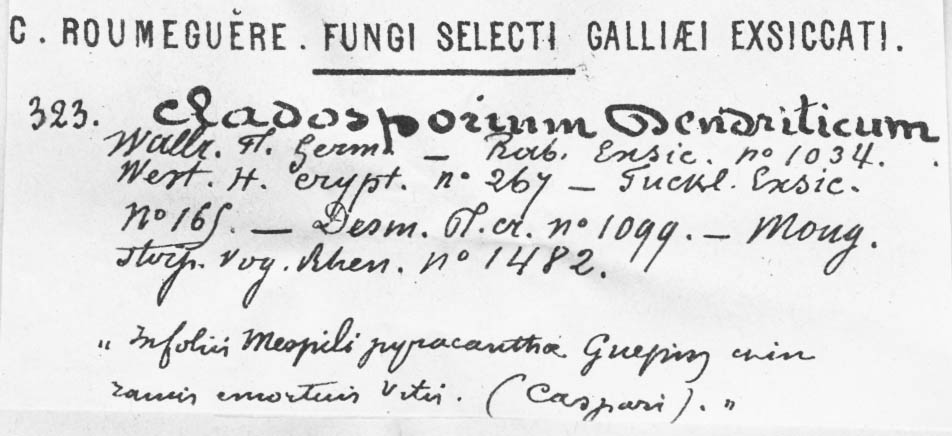 C. ROUMEGUĔRE. FUNGI SELECTI GALLIÆI EXSICCATI.
323. Cladosporium Dendriticum
Wallr. Fl. Germ. — Rab. Exsic. no 1034.
West. H. crypt. no 267 — Fuckl. Exsic.
no 165. — Desm. Pl. cr. no 1099. — Moug.
Stirp. Vog. Rhen. no 1482.
„ In foliis Mespili pyracantha Guepin
ramis emortuis Vitis. (Caspari). „